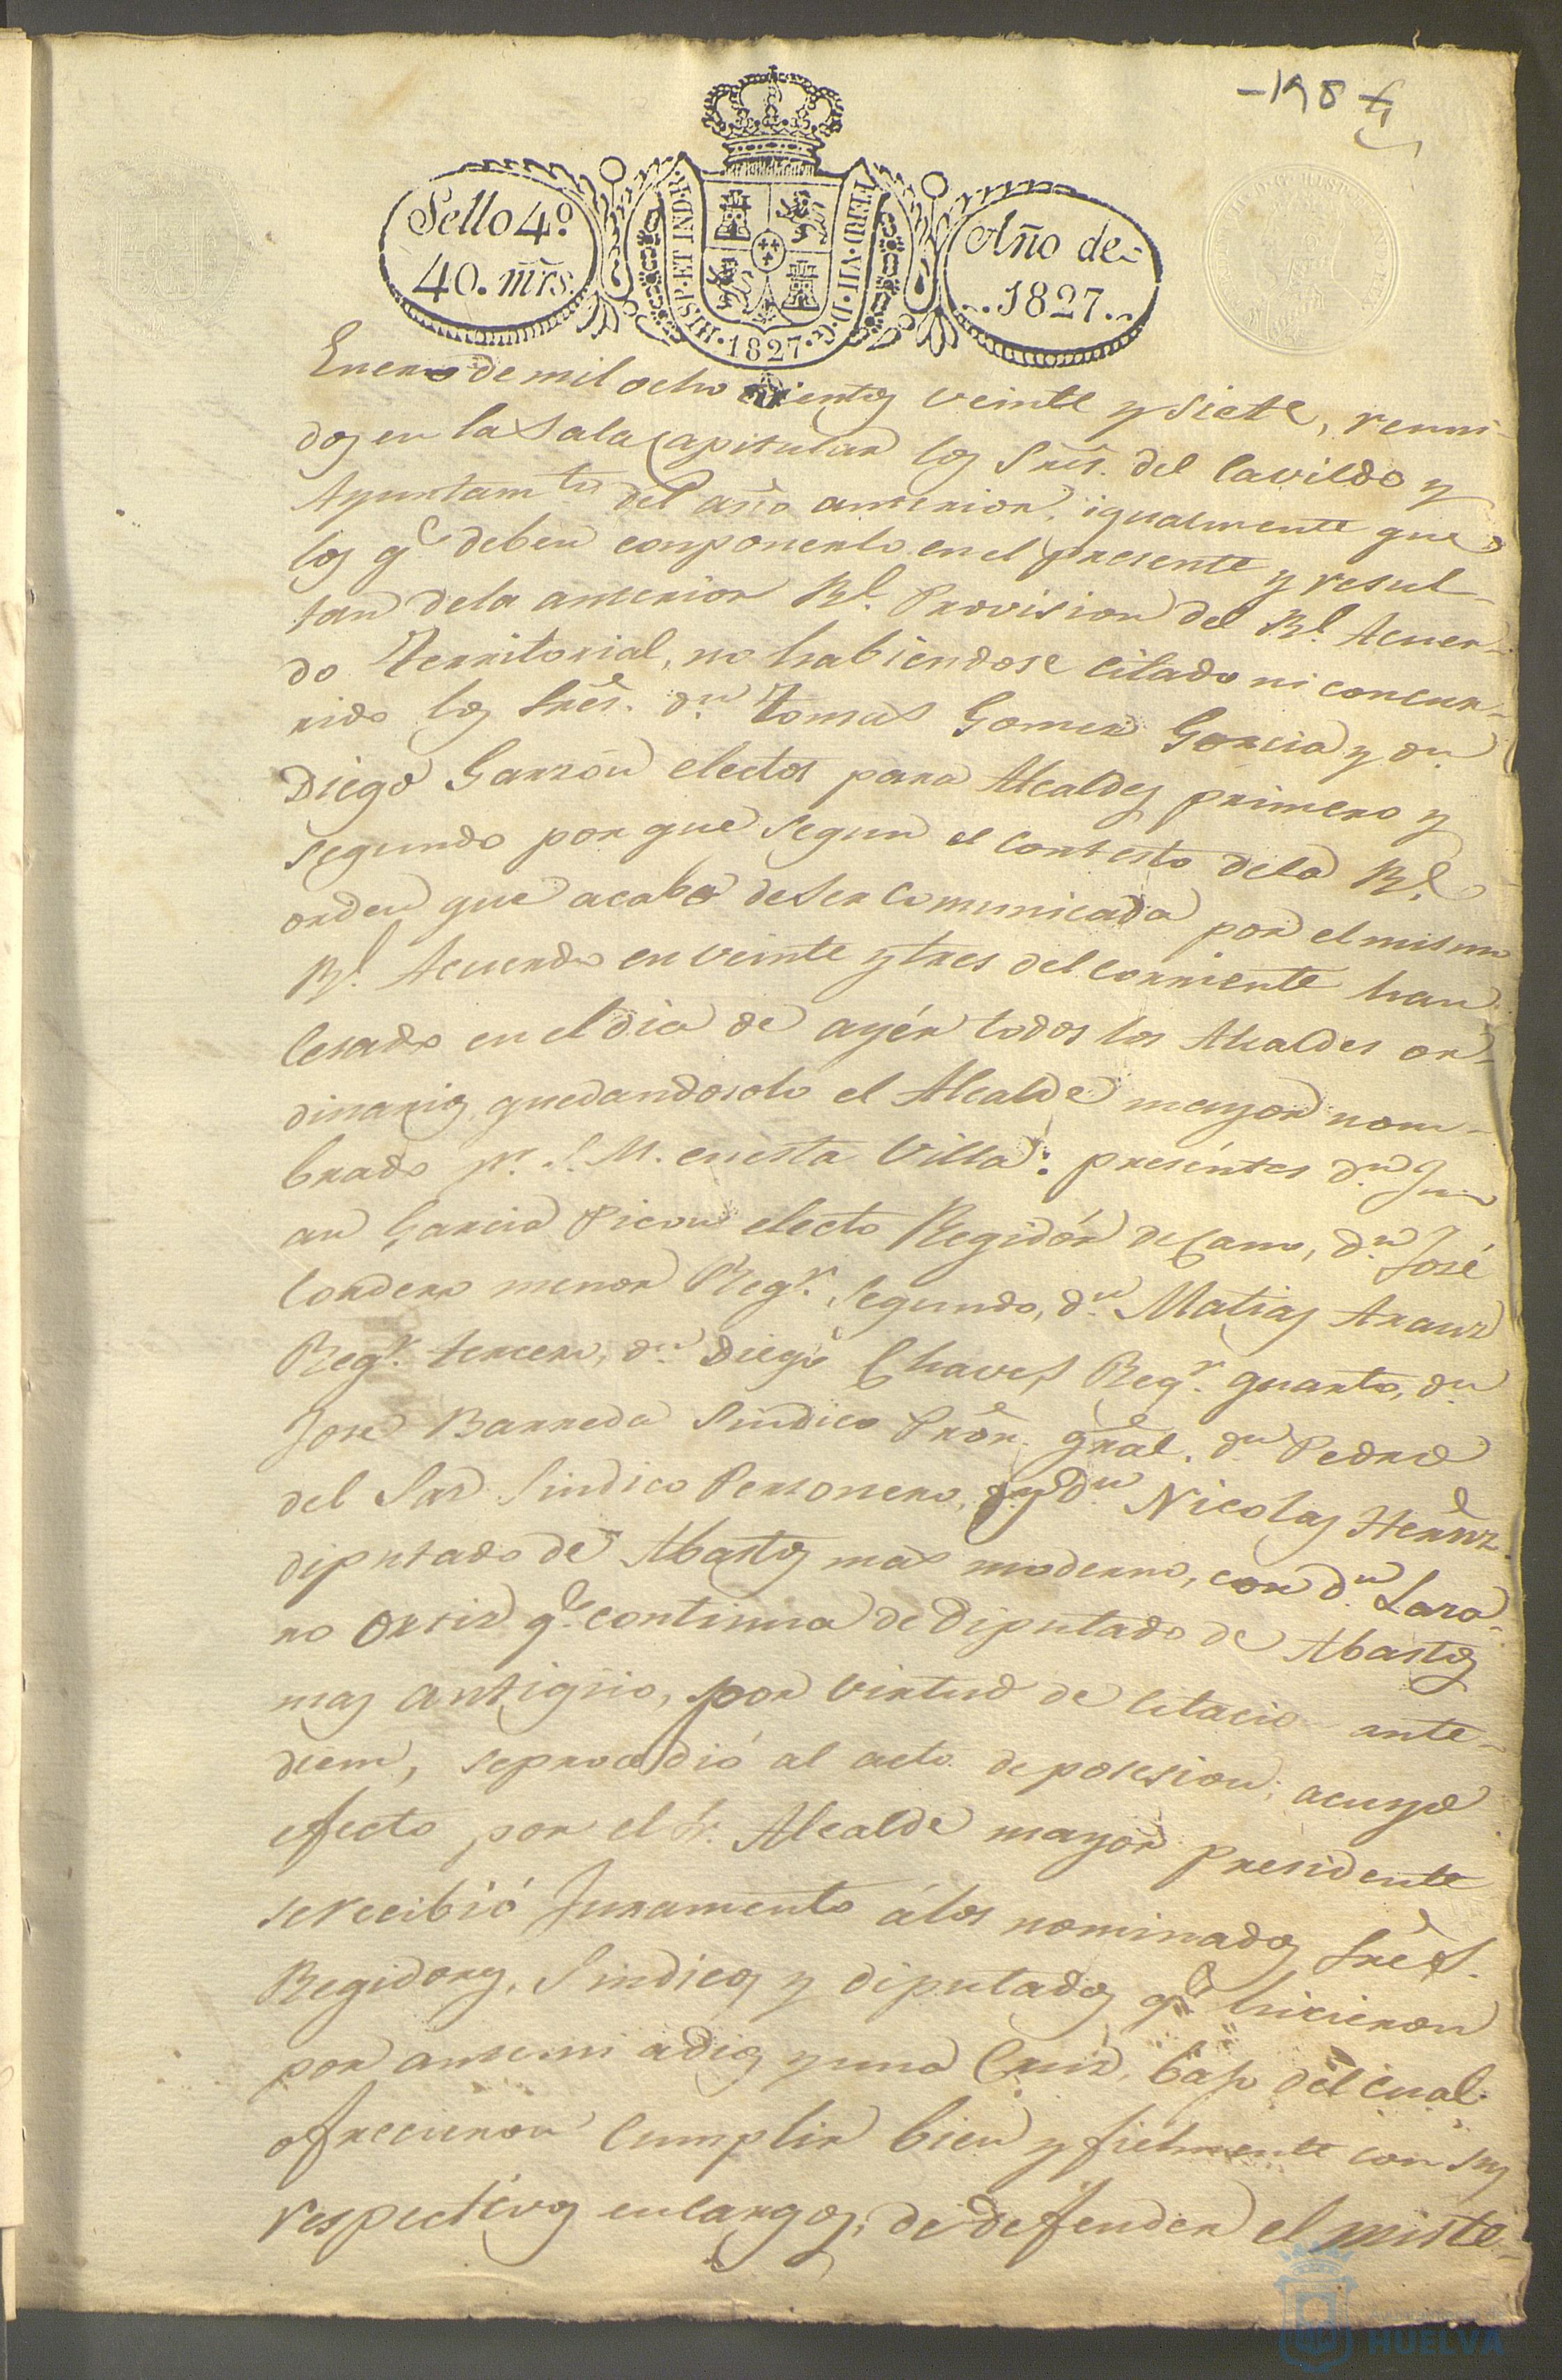 -198
Sello 4º
40. mrs.
HISP. ET IND. R.
FERD. VII. D. G.
·1827·
Año de
1827
Enero de mil ocho cientos veinte y siete, reuni-
dos en la Sala Capitular los Sres. del Cavildo y
Ayuntamto. del año anterior, igualmente que
los qe deben conponerlo en el presente y resul-
tan dela anterior Rl. Provision del Rl. Acuer-
do Territorial, no habiendose citado ni concur-
rido los Sres. dn. Tomas Gomez Garcia y dn.
Diego Garzon electos para Alcaldes primero y
segundo por que segun el contesto dela Rl.
orden que acaba de ser comunicada por el mismo
Rl. Acuerdo en veinte y tres del corriente han
cesado en el dia de ayér todos los Alcaldes or-
dinarios, quedando solo el Alcalde mayor nom-
brado pr. S. M. en esta Villa: preséntes dn. Ju-
an Garcia Picon electo Regidór decano, dn. José
Cordero menor Regr. segundo, dn. Matias Arauz
Regr. tercero, dn. Diego Chaves Regr. quarto, dn.
Jose Barreda Sindico Pror. gral. dn. Pedro
del Saz Sindico Personero, y dn. Nicolas Hernz.
diputado de Abastos mas moderno, con dn. Laza-
ro Ortiz qe. continua de Diputado de Abastos
mas antiguo, por virtud de citacion ante-
diem, se procedió al acto de posesion; acuyo
efecto por el Sr. Alcalde mayor presidente
se recibió Juramento álos nominados Sres.
Regidores, Sindicos y diputados qe hicieron
por antemi adios y una Cruz, bajo del cual
ofrecieron cumplir bien y fielmente con sus
respectivos encargos; de defender el miste-
HUELVA